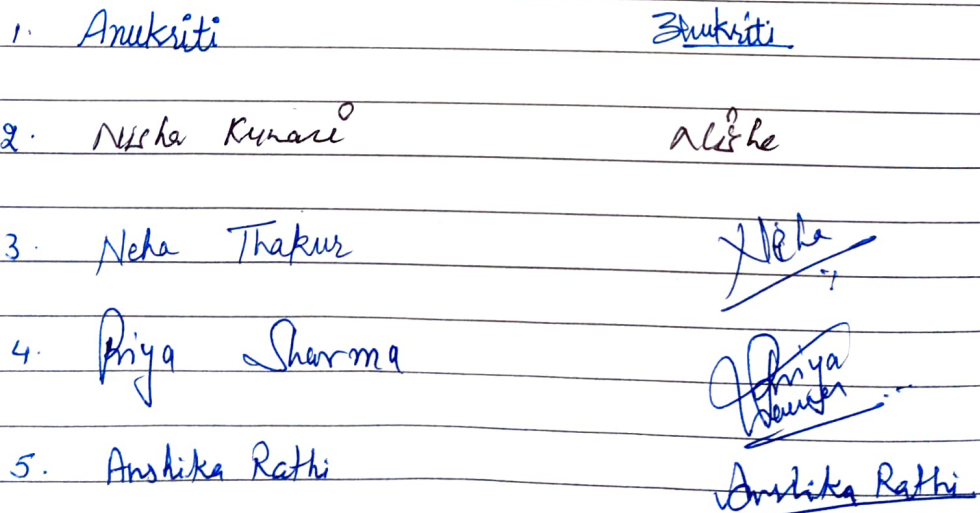 1. Anukriti Anukriti
2. Nisha Kumari Nisha
3. Neha Thakur Neha
4. Priya Sharma Priya
5. Anshika Rathi Anshika Rathi